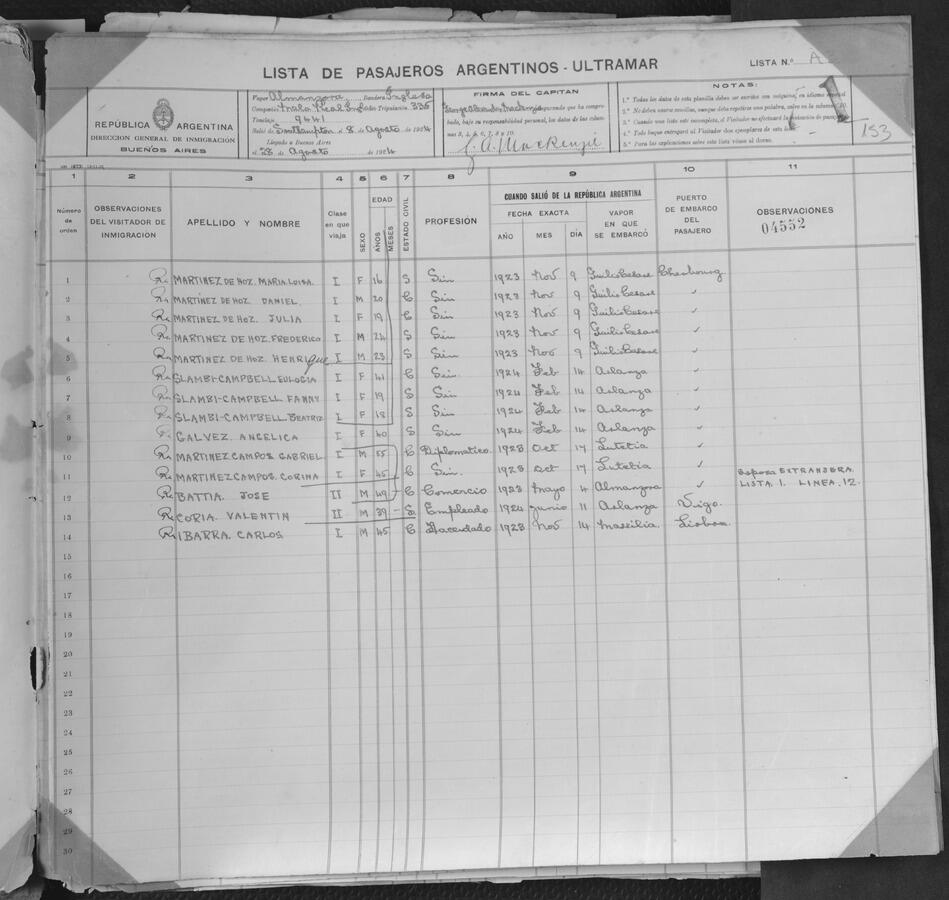 LISTA DE PASAJEROS ARGENTINOS - ULTRAMAR
LISTA N.º
153
REPÚBLICA ARGENTINA
DIRECCION GENERAL DE INMIGRACIÓN
BUENOS AIRES
Vapor Almanzora Bandera Inglesa
Compañía Mala Real Tripulantes 335
Tonelaje 9441
Salió de Southampton el 8 de Agosto de 1924
Llegado a Buenos Aires
el 28 de Agosto de 1924
FIRMA DEL CAPITAN
que ha comprobado, bajo su responsabilidad personal, los datos de las columnas 3, 4, 6, 7, 8 y 10.
G. A. Mackenzie
NOTAS:
1.ª Todos los datos de esta planilla deben ser escritos con máquina, en idioma
2.ª No deben usarse comillas, aunque deba repetirse una palabra, salvo en la columna 10.
3.ª Cuando una lista este incompleta, el Visitador no efectuará la
4.ª Todo buque entregará al Visitador dos ejemplares de esta
5.ª Para las explicaciones sobre esta lista véase al dorso.
1 2 3 4 5 6 7 8 9 10 11
Número de orden
OBSERVACIONES DEL VISITADOR DE INMIGRACIÓN
APELLIDO Y NOMBRE
Clase en que viaja
SEXO
EDAD
AÑOS
MESES
ESTADO CIVIL
PROFESIÓN
CUANDO SALIÓ DE LA REPÚBLICA ARGENTINA
FECHA EXACTA
AÑO MES DÍA
VAPOR EN QUE SE EMBARCÓ
PUERTO DE EMBARCO DEL PASAJERO
OBSERVACIONES
04552
1 Re MARTINEZ DE HOZ. MARIA LUISA. I F 16 S Sin 1923 Nov 9 Giulio Cesare Cherbourg
2 Re MARTINEZ DE HOZ DANIEL. I M 20 C Sin 1923 Nov 9 Giulio Cesare ✓
3 Re MARTINEZ DE HOZ. JULIA I F 19 C Sin 1923 Nov 9 Giulio Cesare ✓
4 Re MARTINEZ DE HOZ. FREDERICO I M 24 S Sin 1923 Nov 9 Giulio Cesare ✓
5 Re MARTINEZ DE HOZ HENRIque I M 23 S Sin 1923 Nov 9 Giulio Cesare ✓
6 Re SLAMBI-CAMPBELL EULOGIA I F 41 C Sin 1924 Feb 14 Arlanza ✓
7 Re SLAMBI-CAMPBELL FANNY I F 19 S Sin 1924 Feb 14 Arlanza ✓
8 Re SLAMBI-CAMPBELL BEATRIZ I F 18 S Sin 1924 Feb 14 Arlanza ✓
9 Re GALVEZ. ANGELICA I F 40 S Sin 1924 Feb 14 Arlanza ✓
10 Re MARTINEZ CAMPOS. GABRIEL I M 55 C Diplomatico 1923 Oct 17 Lutetia ✓
11 Re MARTINEZ CAMPOS. CORINA I F 45 C Sin. 1923 Oct 17 Lutetia ✓ esposa EXTRANJERA.
12 Re BATTIA JOSE II M 49 C Comercio 1923 Mayo 4 Almanzora ✓ LISTA 1. LINEA. 12.
13 Re CORIA. VALENTIN II M 39 - S Empleado 1924 Junio 11 Arlanza Vigo.
14 Re IBARRA. CARLOS I M 45 C Sacerdado 1923 Nov 14 Massilia. Lisboa.
15
16
17
18
19
20
21
22
23
24
25
26
27
28
29
30